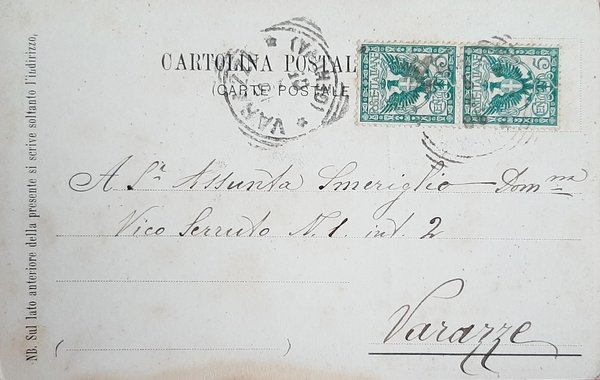 CARTOLINA POSTAL
(CARTE POSTALE
VARAZZE
(GENOVA)
A S.ra Assunta Smeriglio Dom.na
Vico Serruto N. 1. int 2
Varazze
NB. Sul lato anteriore della presente si scrive soltanto l'indirizzo.